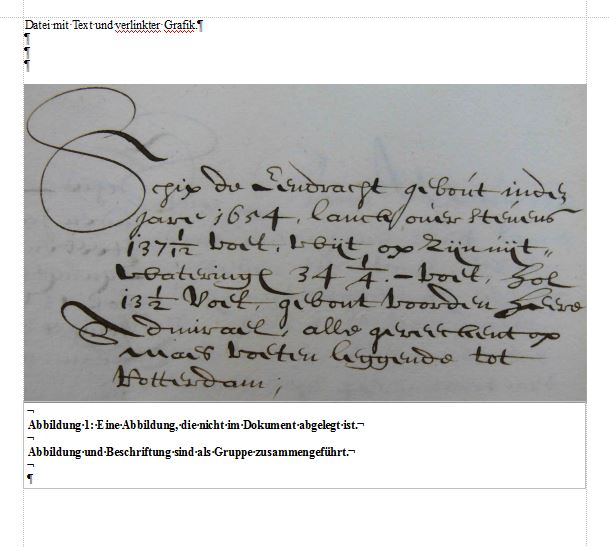 Datei mit Text und verlinkter Grafik.¶
¶
¶
¶
Schip de Eendracht gebout inde
jare 1654, lanck over stevens
137 1/12 voet, wijt op zijn uijt„
wateringe 34 1/4.– voet, hol
13 1/2 Voet, gebout voor den Heere
Admirael, alle gereeckent op
Maes voeten leggende tot
Rotterdam;
¬
Abbildung 1: Eine Abbildung, die nicht im Dokument abgelegt ist.¬
¬
Abbildung und Beschriftung sind als Gruppe zusammengeführt.¬
¬
¶